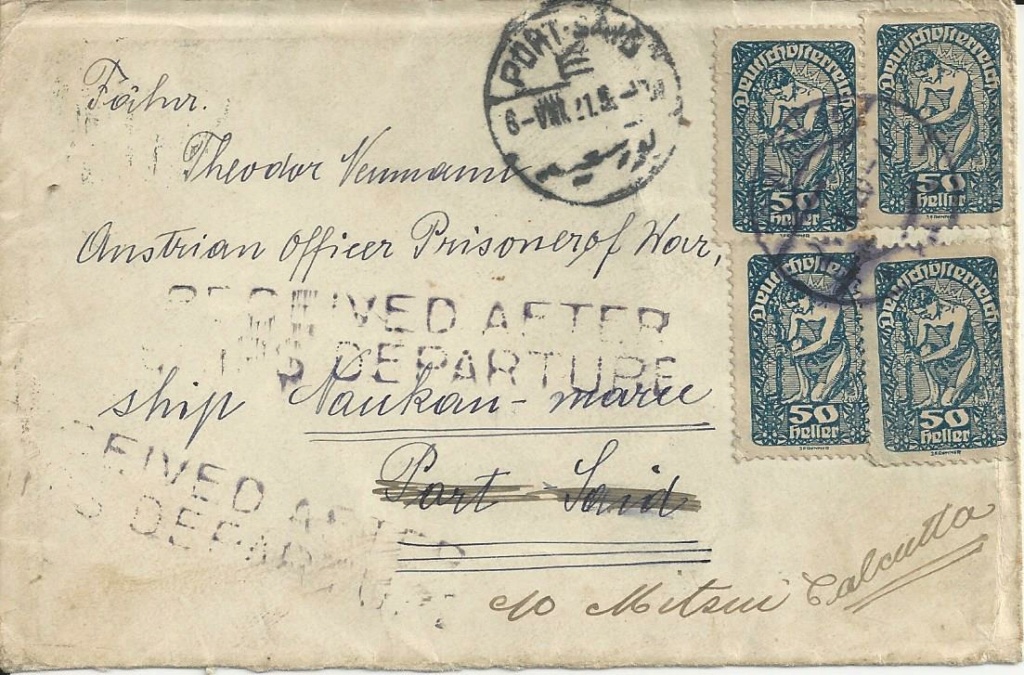 PORT-SAID
6-VIII.21.
بورسعيد
Deutschösterreich
50
heller
Deutschösterreich
50
heller
Deutschösterreich
50
heller
Deutschösterreich
50
heller
Fähnr.
Theodor Neumann
Austrian Officer Prisoner of War,
RECEIVED AFTER
DEPARTURE
ship Naukan-maru
Port Said
RECEIVED AFTER
DEPARTURE
c/o Mitsui Calcutta